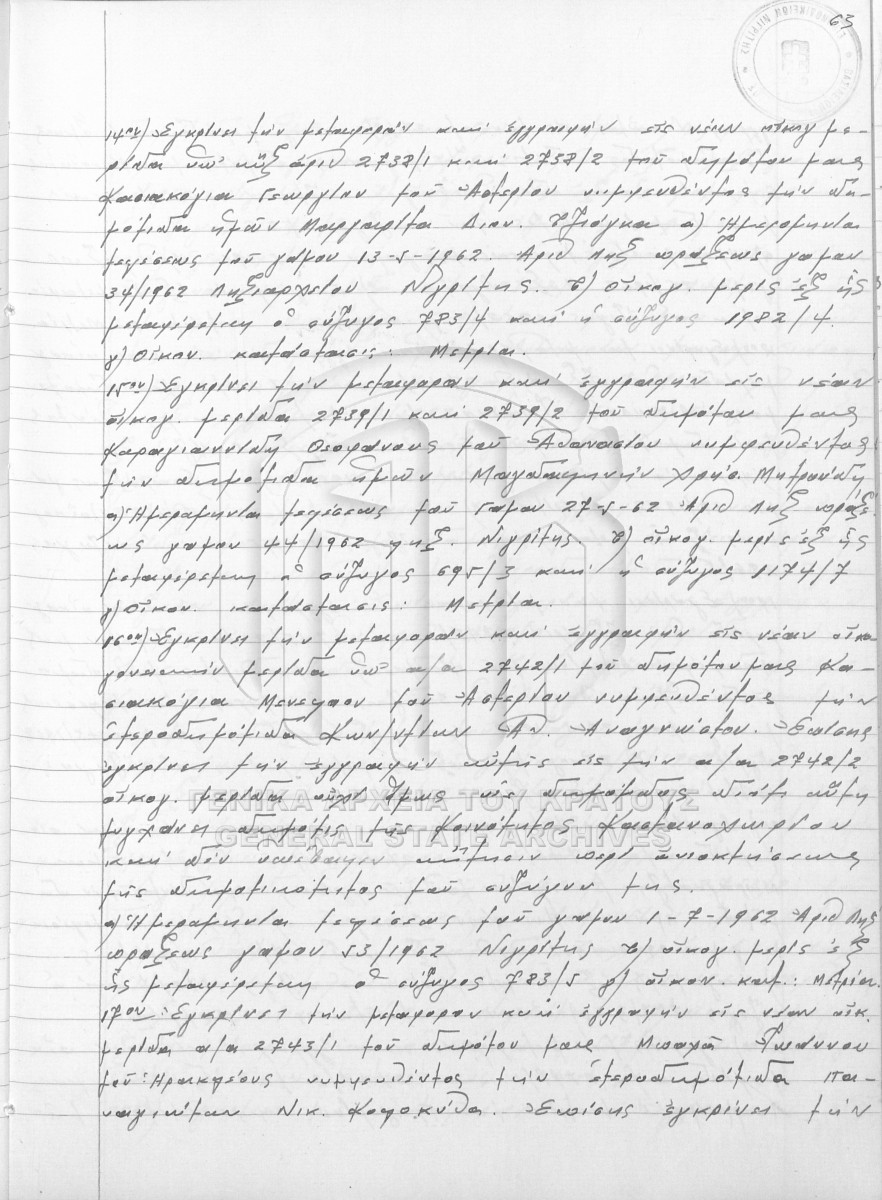 63
14ον) Ἐγκρίνει τήν μεταφοράν καί ἐγγραφήν εἰς νέαν οἰκογ με-
ρίδα ὑπ' αὔξ ἀριθ 2738/1 καί 2738/2 τοῦ δημότου μας
Κασιακόγια Γεωργίου τοῦ Ἀστερίου νυμφευθέντος τήν δη-
μότιδα ἡμῶν Μαργαρίτα Διον. Τζιόγκα α) Ἡμερομηνία
τελέσεως τοῦ γάμου 13-5-1962. Ἀριθ Ληξ πράξεως γάμου
34/1962 Ληξιαρχείου Νιγρίτης. β) οἰκογ. μερίς ἐξ ἧς
μεταφέρεται ὁ σύζυγος 783/4 καί ἡ σύζυγος 1982/4.
γ) Οἰκον. κατάστασις: Μετρία.
15ον) Ἐγκρίνει τήν μεταφοράν καί ἐγγραφήν εἰς νέαν
οἰκογ. μερίδα 2739/1 καί 2739/2 τοῦ δημότου μας
Καραγιαννίδη Θεοφάνους τοῦ Ἀθανασίου νυμφευθέντος
τήν δημότιδα ἡμῶν Μαγδαληνήν Χρήσ. Μητρούδη
α) Ἡμερομηνία τελέσεως τοῦ Γάμου 27-5-62 Ἀριθ Ληξ πράξε-
ως γάμου 44/1962 ληξ. Νιγρίτης. β) οἰκογ. μερίς ἐξ ἧς
μεταφέρεται ὁ σύζυγος 695/3 καί ἡ σύζυγος 1174/7
γ) Οἰκον. κατάστασις: Μετρία.
16ον) Ἐγκρίνει τήν μεταφοράν καί ἐγγραφήν εἰς νέαν οἰκο-
γενειακήν μερίδα ὑπ' α/α 2742/1 τοῦ δημότου μας Κα-
σιακόγια Μενελάου τοῦ Ἀστερίου νυμφευθέντος τήν
ἑτεροδημότιδα Κων/ντίαν Ἀθ. Ἀναγνώστου. Ἐπίσης
ἐγκρίνει τήν ἐγγραφήν αὐτῆς εἰς τήν α/α 2742/2
οἰκογ. μερίδα οὐχί ὅμως ὡς δημότιδος διότι αὕτη
τυγχάνει δημότις τῆς Κοινότητος Καστανοχωρίου
καί δέν ὑπέβαλεν αἴτησιν περί ἀποκτήσεως
τῆς δημοτικότητος τοῦ συζύγου της.
α) Ἡμερομηνία τελέσεως τοῦ γάμου 1-7-1962 Ἀριθ Ληξ
πράξεως γάμου 53/1962 Νιγρίτης β) οἰκογ. μερίς ἐξ
ἧς μεταφέρεται ὁ σύζυγος 783/5 γ) οἰκον. κατ.: Μετρία.
17ον Ἐγκρίνει τήν μεταφοράν καί ἐγγραφήν εἰς νέαν οἰκ.
μερίδα α/α 2743/1 τοῦ δημότου μας Ἰωάννου
τοῦ Ἡρακλέους νυμφευθέντος τήν ἑτεροδημότιδα Πα-
ναγιώταν Νικ. Κολοκύθα. Ἐπίσης ἐγκρίνει τήν
ΓΕΝΙΚΑ ΑΡΧΕΙΑ ΤΟΥ ΚΡΑΤΟΥΣ
GENERAL STATE ARCHIVES